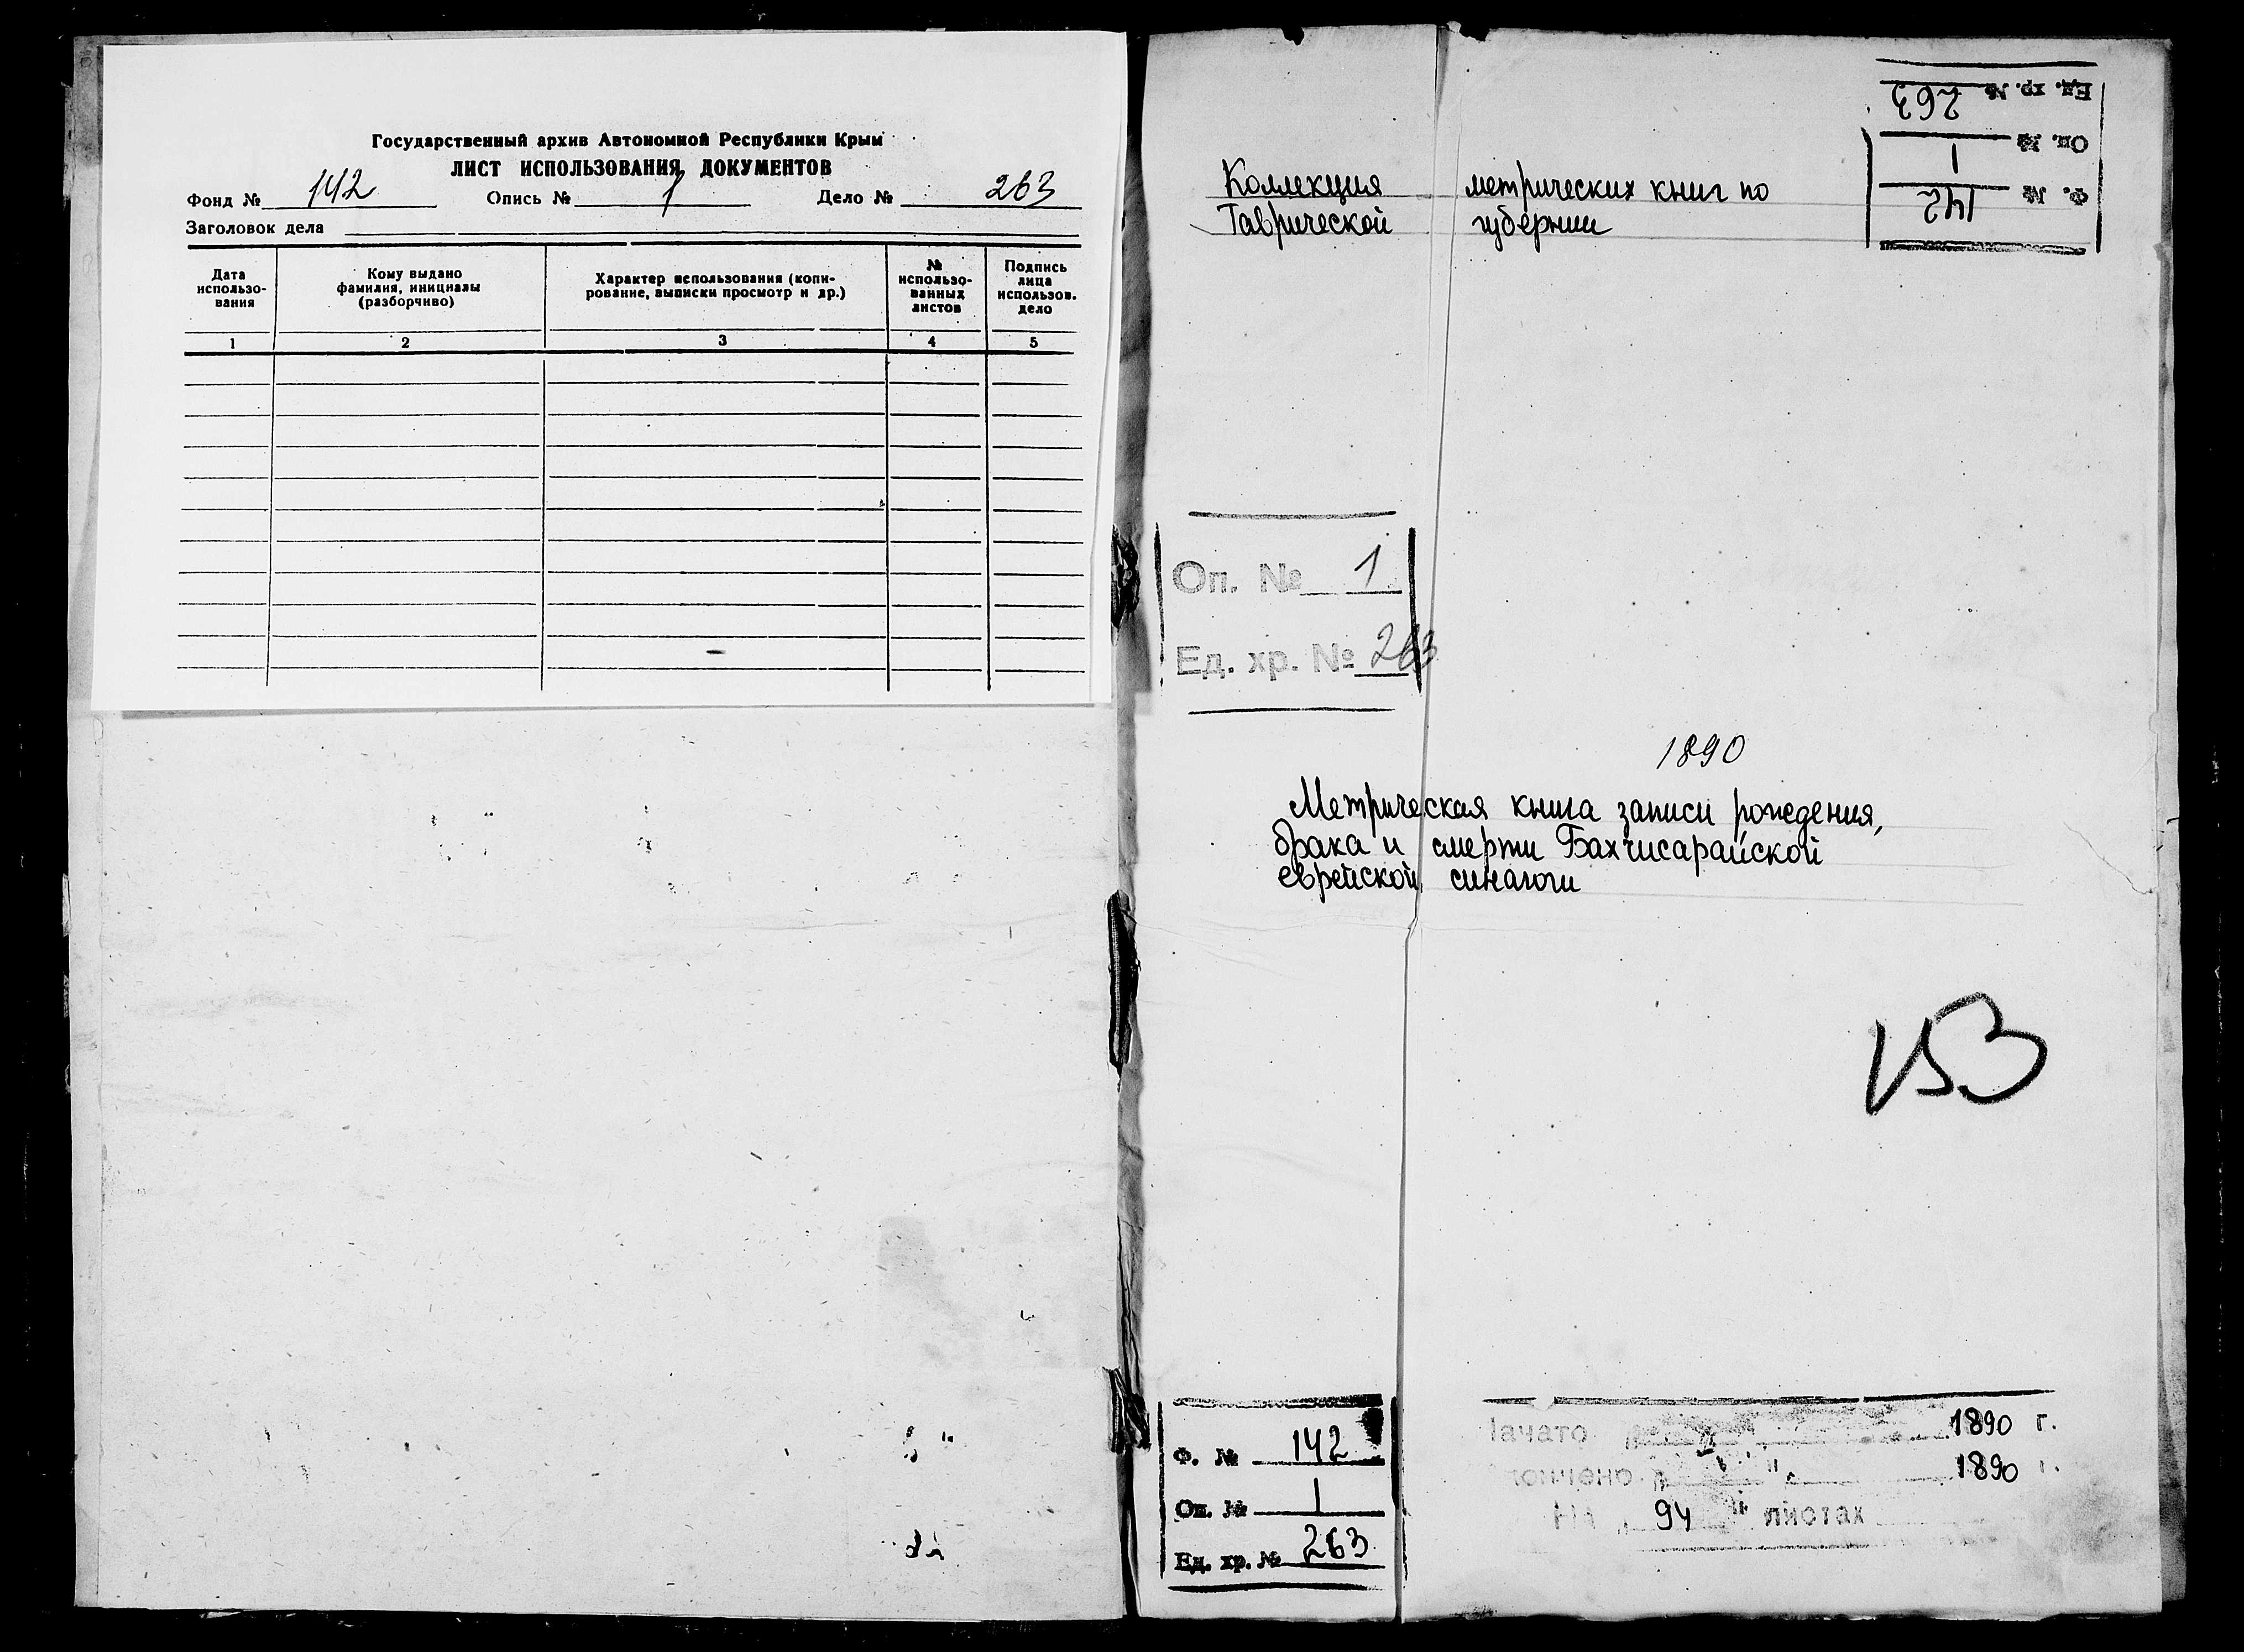 Государственный архив Автономной Республики Крым
ЛИСТ ИСПОЛЬЗОВАНИЯ ДОКУМЕНТОВ
Фонд № 142 Опись № 1 Дело № 263
Заголовок дела
Дата использо-вания
Кому выдано фамилия, инициалы (разборчиво)
Характер использования (копи-рование, выписки просмотр и др.)
№ использо-ванных листов
Подпись лица использов. дело
1 2 3 4 5
Ед. хр. № 263
Оп. № 1
Ф. № 142
Коллекция метрических книг по
Таврической губернии
Оп. № 1
Ед. хр. № 263
1890
Метрическая книга записи рождения,
брака и смерти Бахчисарайской
еврейской синагоги
Ф. № 142
Оп. № 1
Ед. хр. № 263
Начато 1890 г.
кончено 1890 г.
На 94 листах